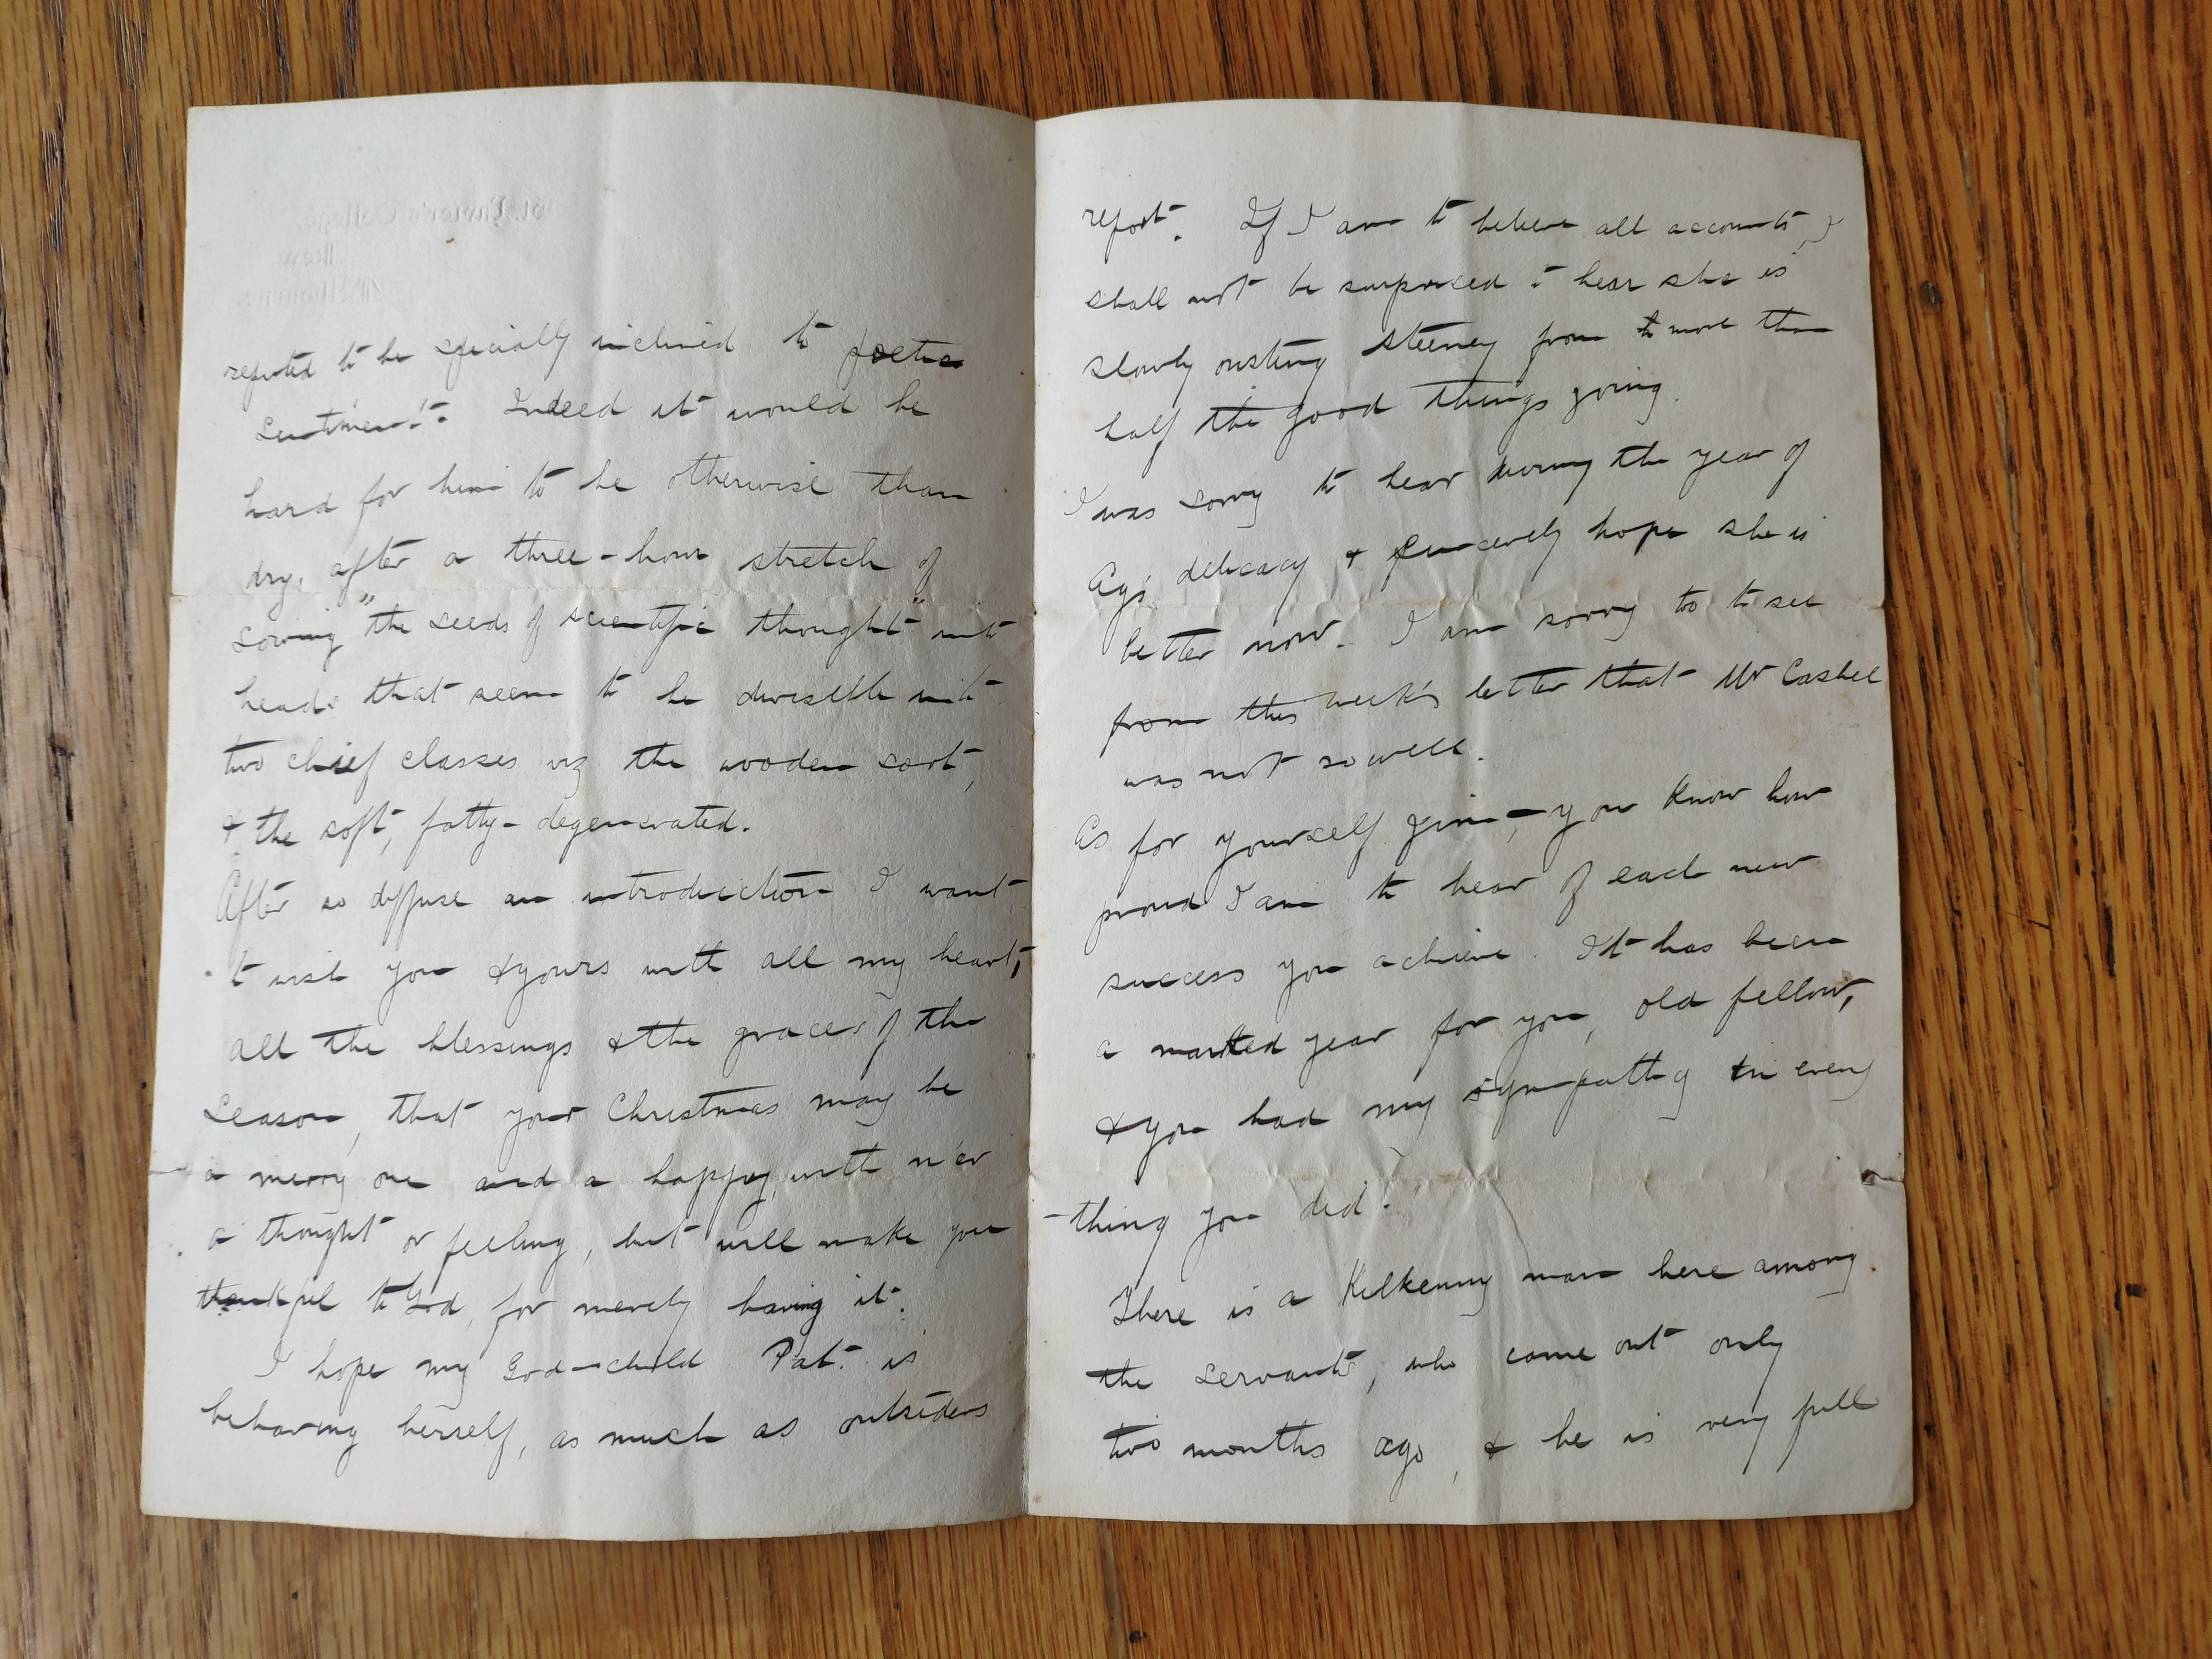 St. Xavier's College
Kew
Melbourne.
reputed to be specially inclined to poetic
sentiment. Indeed it would be
hard for him to be otherwise than
dry, after a three-hour stretch of
sowing "the seeds of scientific thought" into
heads that seem to be divisible into
two chief classes viz the wooden sort,
& the soft, fatty-degenerated.
After so diffuse an introduction I want
to wish you & yours with all my heart,
all the blessings & the graces of the
Season, that your Christmas may be
a merry one and a happy, with n'er
a thought or feeling, but will make you
thankful to God, for merely having it.
I hope my God-child Pat. is
behaving herself, as much as outsiders
report. If I am to believe all accounts, I
shall not be surprised to hear she is
slowly ousting Steeney from to more than
half the good things going.
I was sorry to hear during the year of
Ag's delicacy & sincerely hope she is
better now. I am sorry too to see
from this week's letter that Mr Cashel
was not so well.
As for yourself Jim,-you know how
proud I am to hear of each new
success you achieve. It has been
a marked year for you, old fellow,
& you had my sympathy in every
-thing you did.
There is a Kilkenny man here among
the servants, who came out only
two months ago, & he is very full